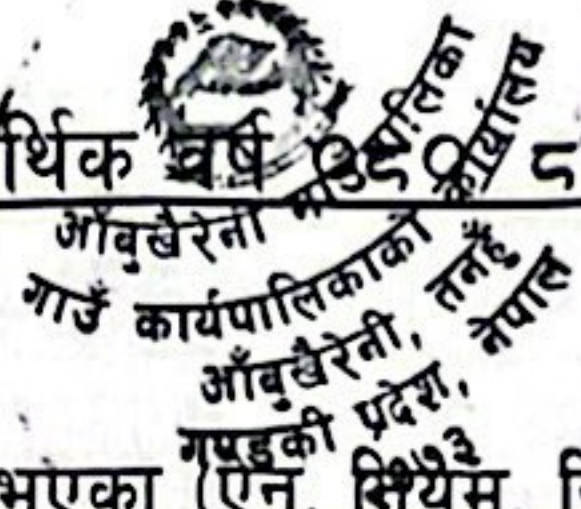 र्थिक वर्ष
आँबुखैरेनी गाउँपालिका
गाउँ कार्यपालिकाको कार्यालय
आँबुखैरेनी, तनहुँ
गण्डकी प्रदेश, नेपाल
भएका (एन.